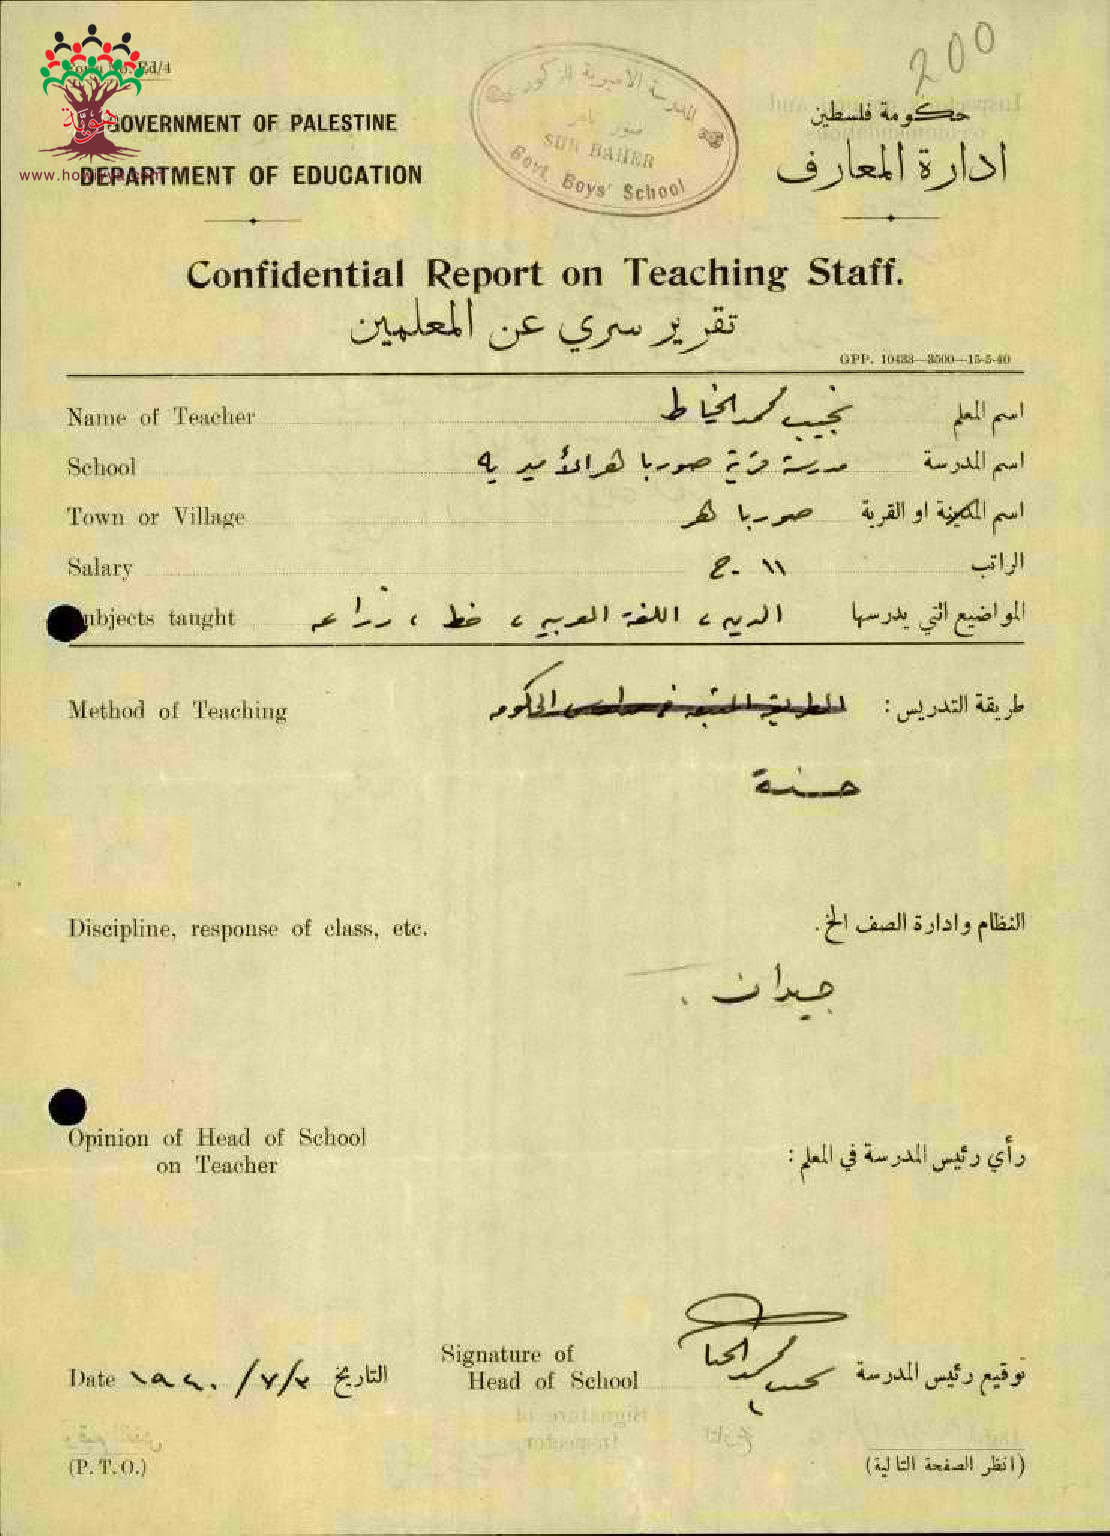 200
Form No. Ed/4
هوية
www.howiyya.com
GOVERNMENT OF PALESTINE
DEPARTMENT OF EDUCATION
المدرسة الاميرية للذكور
صور باهر
SUR BAHER
Govt. Boys' School
حكومة فلسطين
ادارة المعارف
Confidential Report on Teaching Staff.
تقرير سري عن المعلمين
GPP. 10433—3500—15-5-40
Name of Teacher نجيب محمد الخياط اسم المعلم
School مدرسة قرية صور باهر الأميرية اسم المدرسة
Town or Village صور باهر اسم المدينة او القرية
Salary ١١ ج. الراتب
Subjects taught الدين، اللغة العربية، خط، زراعة المواضيع التي يدرسها
Method of Teaching الطريقة المتبعة في مدارس الحكومة طريقة التدريس :
حسنة
Discipline, response of class, etc. النظام وادارة الصف الخ.
جيدان.
Opinion of Head of School
on Teacher
رأي رئيس المدرسة في المعلم :
Signature of
Head of School نجيب محمد الخياط توقيع رئيس المدرسة
Date ١٩٤٠/٧/ التاريخ
(P. T. O.) (انظر الصفحة التالية)